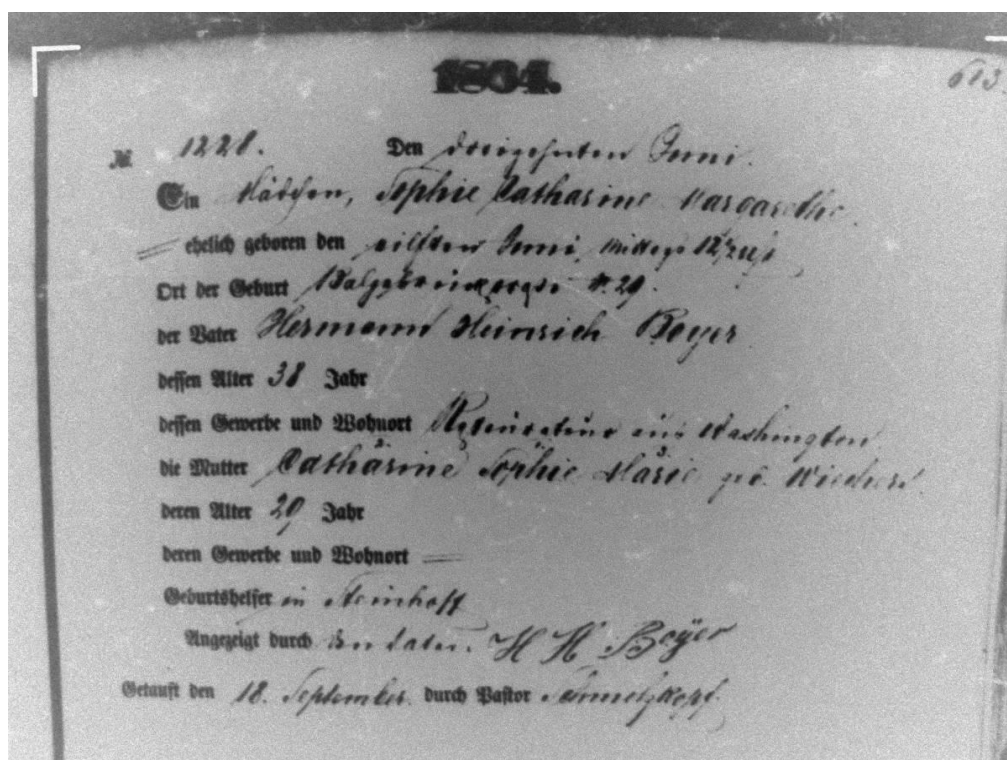 1864.
613
№ 1228. Den dreizehnten Juni.
Ein Mädchen, Sophie Catharine Margarethe
ehelich geboren den eilften Juni, Mittags 12½ Uhr
Ort der Geburt N. 29.
der Vater Hermann Heinrich Boyer
dessen Alter 38 Jahr
dessen Gewerbe und Wohnort Restaurateur aus Washington
die Mutter Catharine Sophie Marie geb. Wiechers
deren Alter 29 Jahr
deren Gewerbe und Wohnort
Geburtshelfer in Steinhoff
Angezeigt durch den Vater. H H Boÿer
Getauft den 18. September. durch Pastor